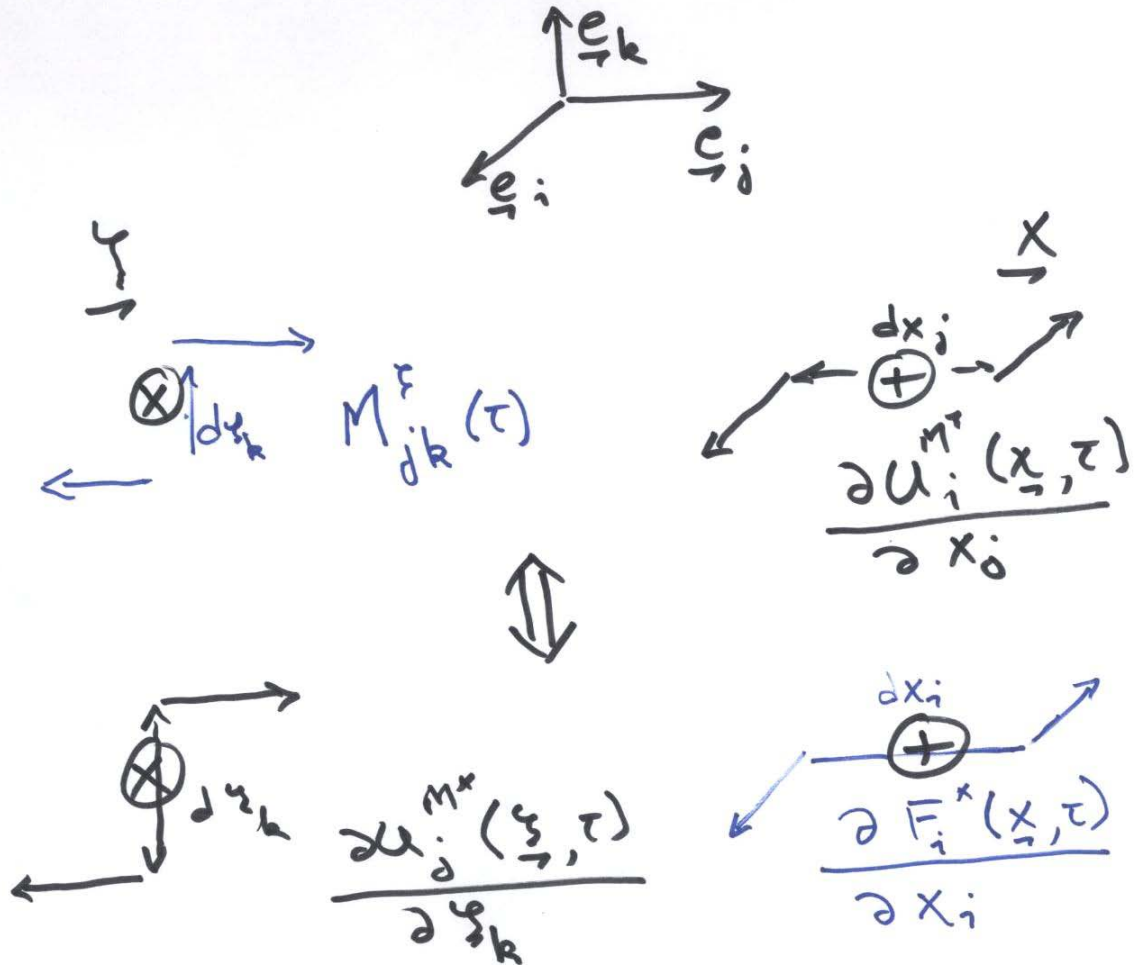 e k
e j
e i
ξ
x
dx j
dξ k
M ξ jk (τ)
∂u i M ξ (x, τ)
∂x j
⇕
dξ k
∂u j M x (ξ, τ)
∂ξ k
dx i
∂F i x (x, τ)
∂x i